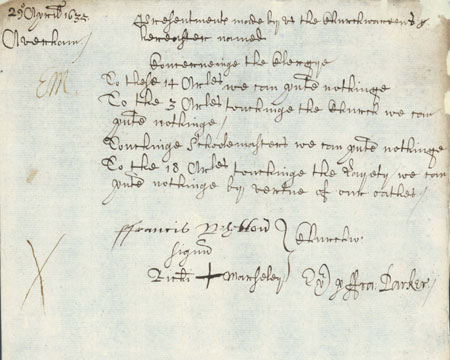 29º Aprill 1633
Averham
Presentments made by us the Churchwardens
hereafter named
Concerninge the Clergie
EM.
To these 14 Artcles we can pnte nothinge
To the 3 Artcles touchinge the Church we can
pnte nothinge /
Touchinge Schoolemasters we can pnte nothinge
To the 18 Artcles touchinge the Layety we can
pnte nothinge by vertue of our oathes /
ffrancis
signu
Churchw
Rich + Marsheley
ffra: Parker
X